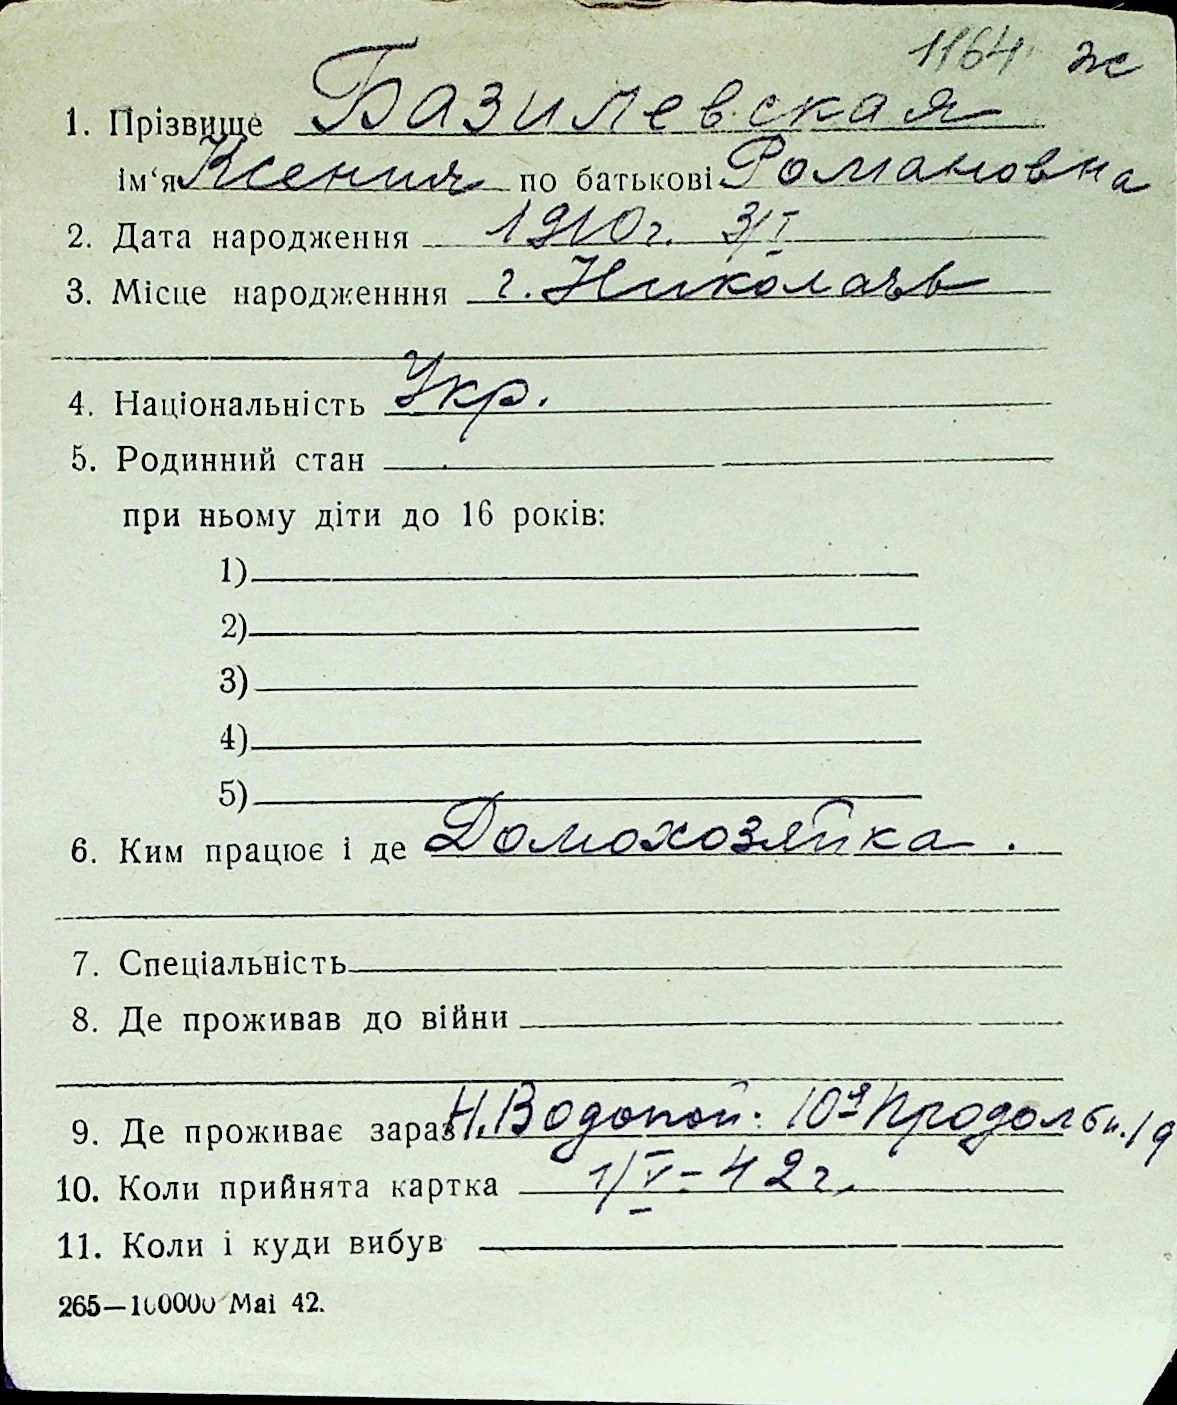 1164 ж
1. Прізвище Базилевская
ім'я Ксения по батькові Романовна
2. Дата народження 1910 г. 3/I
3. Місце народженння г. Николаевъ
4. Національність Укр.
5. Родинний стан
при ньому діти до 16 років:
1)
2)
3)
4)
5)
6. Ким працює і де Домохозяйка.
7. Спеціальність
8. Де проживав до війни
9. Де проживає зараз Н. Водопой. 10я Продольн.
10. Коли прийнята картка 1/V-42 г.
11. Коли і куди вибув
265—100000 Маі 42.